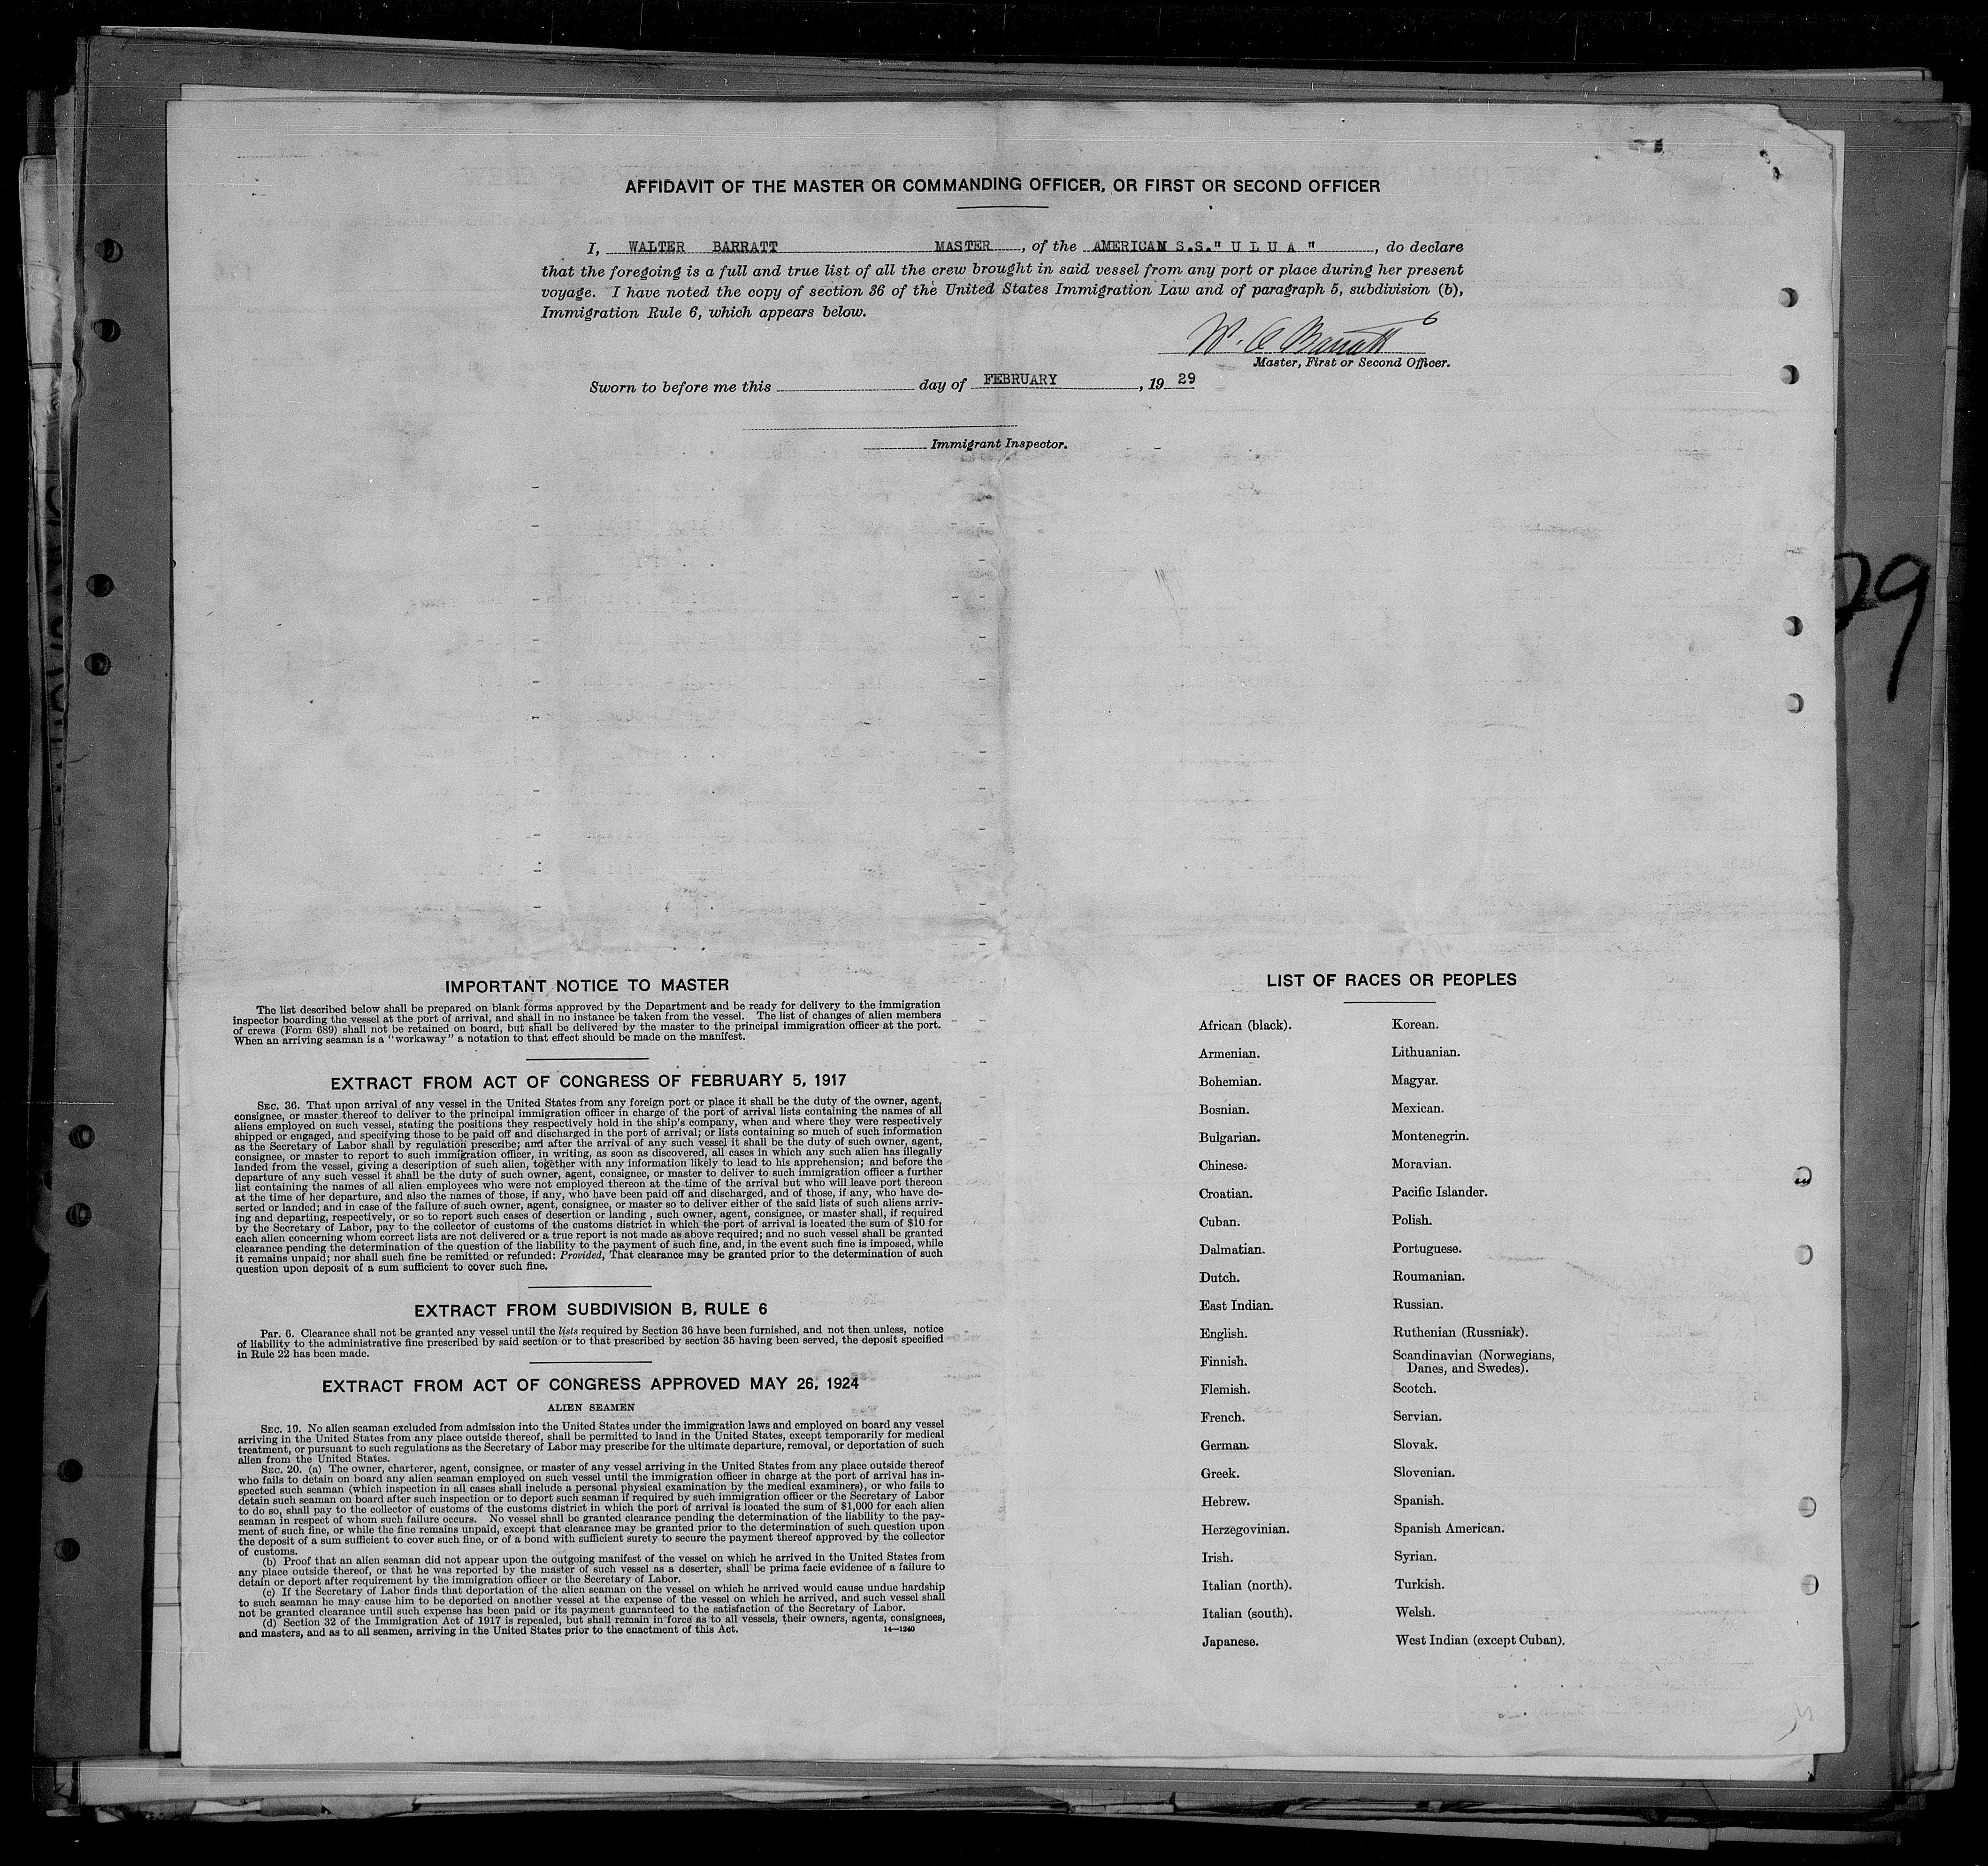 AFFIDAVIT OF THE MASTER OR COMMANDING OFFICER, OR FIRST OR SECOND OFFICER
I, WALTER BARRATT MASTER, of the AMERICAN S.S." U L U A ", do declare
that the foregoing is a full and true list of all the crew brought in said vessel from any port or place during her present
voyage. I have noted the copy of section 36 of the United States Immigration Law and of paragraph 5, subdivision (b),
Immigration Rule 6, which appears below.
W. A Barratt
Master, First or Second Officer.
Sworn to before me this day of FEBRUARY, 19 29
Immigrant Inspector.
29
IMPORTANT NOTICE TO MASTER
The list described below shall be prepared on blank forms approved by the Department and be ready for delivery to the immigration
inspector boarding the vessel at the port of arrival, and shall in no instance be taken from the vessel. The list of changes of alien members
of crews (Form 689) shall not be retained on board, but shall be delivered by the master to the principal immigration officer at the port.
When an arriving seaman is a "workaway" a notation to that effect should be made on the manifest.
EXTRACT FROM ACT OF CONGRESS OF FEBRUARY 5, 1917
SEC. 36. That upon arrival of any vessel in the United States from any foreign port or place it shall be the duty of the owner, agent,
consignee, or master thereof to deliver to the principal immigration officer in charge of the port of arrival lists containing the names of all
aliens employed on such vessel, stating the positions they respectively hold in the ship's company, when and where they were respectively
shipped or engaged, and specifying those to be paid off and discharged in the port of arrival; or lists containing so much of such information
as the Secretary of Labor shall by regulation prescribe; and after the arrival of any such vessel it shall be the duty of such owner, agent,
consignee, or master to report to such immigration officer, in writing, as soon as discovered, all cases in which any such alien has illegally
landed from the vessel, giving a description of such alien, together with any information likely to lead to his apprehension; and before the
departure of any such vessel it shall be the duty of such owner, agent, consignee, or master to deliver to such immigration officer a further
list containing the names of all alien employees who were not employed thereon at the time of the arrival but who will leave port thereon
at the time of her departure, and also the names of those, if any, who have been paid off and discharged, and of those, if any, who have de-
serted or landed; and in case of the failure of such owner, agent, consignee, or master so to deliver either of the said lists of such aliens arriv-
ing and departing, respectively, or so to report such cases of desertion or landing , such owner, agent, consignee, or master shall, if required
by the Secretary of Labor, pay to the collector of customs of the customs district in which the port of arrival is located the sum of $10 for
each alien concerning whom correct lists are not delivered or a true report is not made as above required; and no such vessel shall be granted
clearance pending the determination of the question of the liability to the payment of such fine, and, in the event such fine is imposed, while
it remains unpaid; nor shall such fine be remitted or refunded: Provided, That clearance may be granted prior to the determination of such
question upon deposit of a sum sufficient to cover such fine.
EXTRACT FROM SUBDIVISION B, RULE 6
Par. 6. Clearance shall not be granted any vessel until the lists required by Section 36 have been furnished, and not then unless, notice
of liability to the administrative fine prescribed by said section or to that prescribed by section 35 having been served, the deposit specified
in Rule 22 has been made.
EXTRACT FROM ACT OF CONGRESS APPROVED MAY 26, 1924
ALIEN SEAMEN
SEC. 19. No alien seaman excluded from admission into the United States under the immigration laws and employed on board any vessel
arriving in the United States from any place outside thereof, shall be permitted to land in the United States, except temporarily for medical
treatment, or pursuant to such regulations as the Secretary of Labor may prescribe for the ultimate departure, removal, or deportation of such
alien from the United States.
SEC. 20. (a) The owner, charterer, agent, consignee, or master of any vessel arriving in the United States from any place outside thereof
who fails to detain on board any alien seaman employed on such vessel until the immigration officer in charge at the port of arrival has in-
spected such seaman (which inspection in all cases shall include a personal physical examination by the medical examiners), or who fails to
detain such seaman on board after such inspection or to deport such seaman if required by such immigration officer or the Secretary of Labor
to do so, shall pay to the collector of customs of the customs district in which the port of arrival is located the sum of $1,000 for each alien
seaman in respect of whom such failure occurs. No vessel shall be granted clearance pending the determination of the liability to the pay-
ment of such fine, or while the fine remains unpaid, except that clearance may be granted prior to the determination of such question upon
the deposit of a sum sufficient to cover such fine, or of a bond with sufficient surety to secure the payment thereof approved by the collector
of customs.
(b) Proof that an alien seaman did not appear upon the outgoing manifest of the vessel on which he arrived in the United States from
any place outside thereof, or that he was reported by the master of such vessel as a deserter, shall be prima facie evidence of a failure to
detain or deport after requirement by the immigration officer or the Secretary of Labor.
(c) If the Secretary of Labor finds that deportation of the alien seaman on the vessel on which he arrived would cause undue hardship
to such seaman he may cause him to be deported on another vessel at the expense of the vessel on which he arrived, and such vessel shall
not be granted clearance until such expense has been paid or its payment guaranteed to the satisfaction of the Secretary of Labor.
(d) Section 32 of the Immigration Act of 1917 is repealed, but shall remain in force as to all vessels, their owners, agents, consignees,
and masters, and as to all seamen, arriving in the United States prior to the enactment of this Act. 14—1240
LIST OF RACES OR PEOPLES
African (black). Korean.
Armenian. Lithuanian.
Bohemian. Magyar.
Bosnian. Mexican.
Bulgarian. Montenegrin.
Chinese. Moravian.
Croatian. Pacific Islander.
Cuban. Polish.
Dalmatian. Portuguese.
Dutch. Roumanian.
East Indian. Russian.
English. Ruthenian (Russniak).
Finnish. Scandinavian (Norwegians,
Danes, and Swedes).
Flemish. Scotch.
French. Servian.
German. Slovak.
Greek. Slovenian.
Hebrew. Spanish.
Herzegovinian. Spanish American.
Irish. Syrian.
Italian (north). Turkish.
Italian (south). Welsh.
Japanese. West Indian (except Cuban).